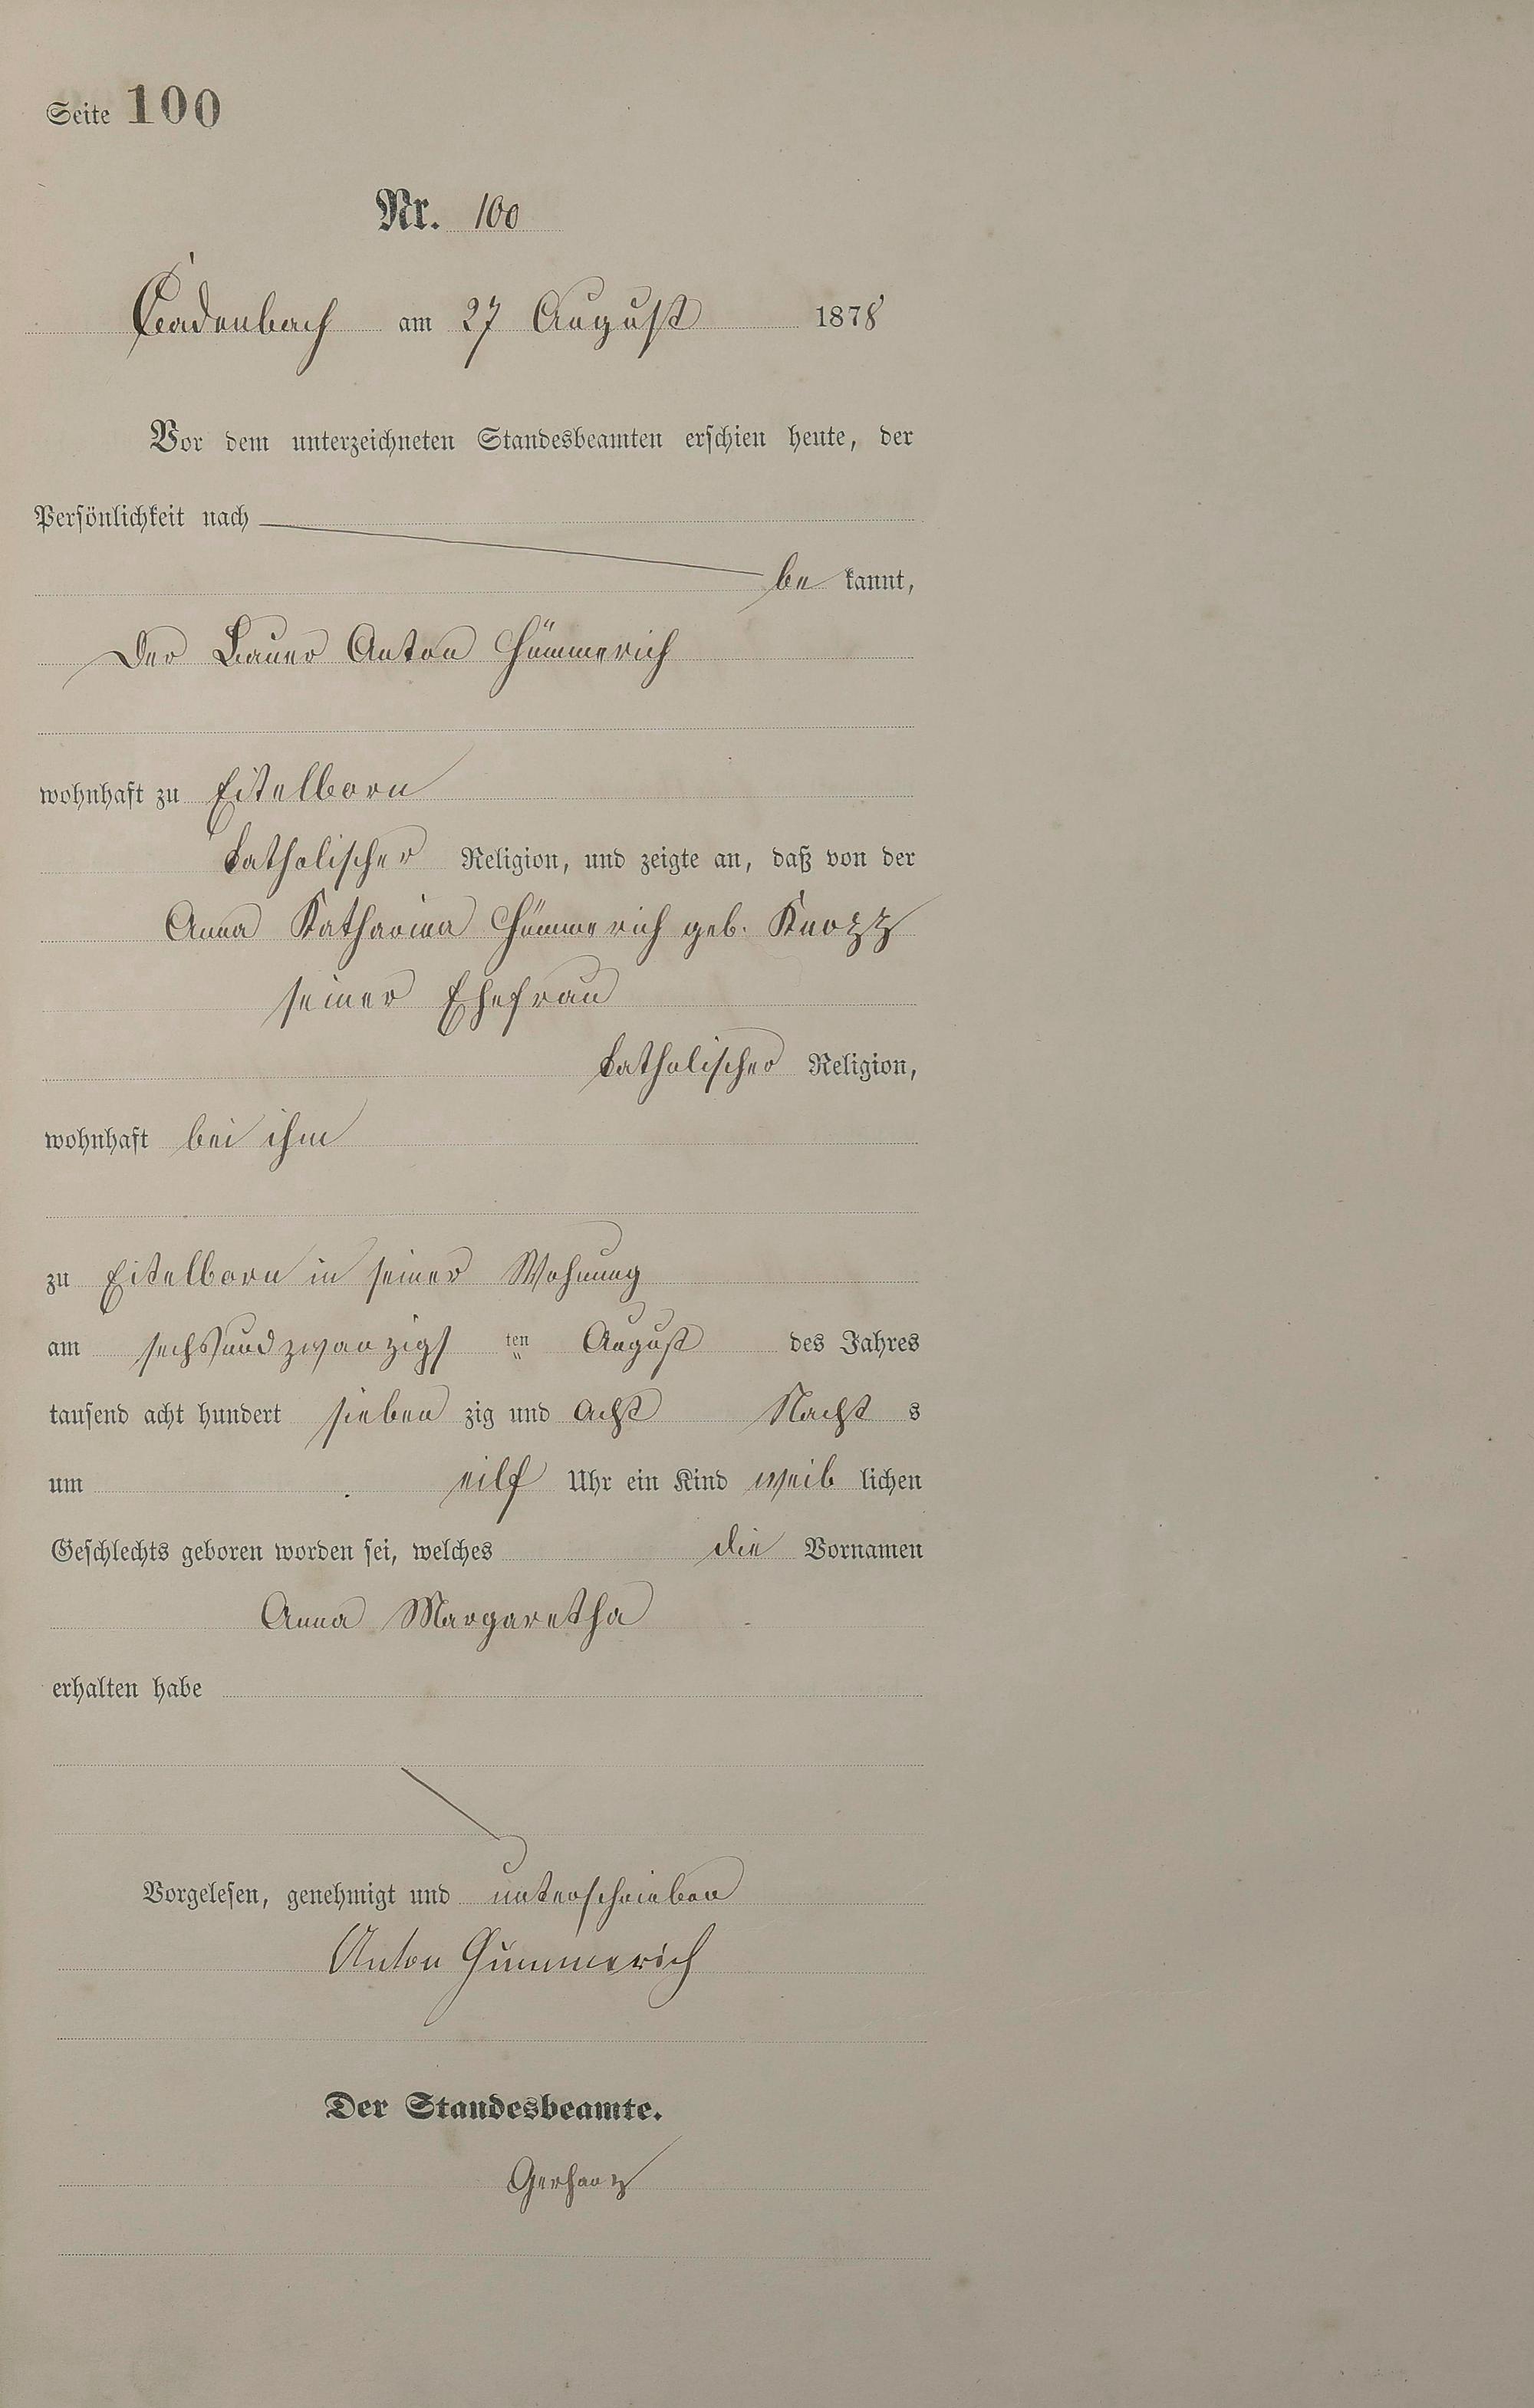 Seite 100
Nr. 100
Cadenbach am 27 August 1878
Vor dem unterzeichneten Standesbeamten erschien heute, der
Persönlichkeit nach
be kannt,
Der Bauer Anton Hümmerich
wohnhaft zu Eitelborn
katholischer Religion, und zeigte an, daß von der
Anna Katharina Hümmerich geb. Knopp
seiner Ehefrau
katholischer Religion,
wohnhaft bei ihm
zu Eitelborn in seiner Wohnung
am sechsundzwanzigs ten August des Jahres
tausend acht hundert sieben zig und acht Nacht s
um eilf Uhr ein Kind weib lichen
Geschlechts geboren worden sei, welches die Vornamen
Anna Margaretha
erhalten habe
Vorgelesen, genehmigt und unterschrieben
Anton Hümmerich
Der Standesbeamte.
Gerharz